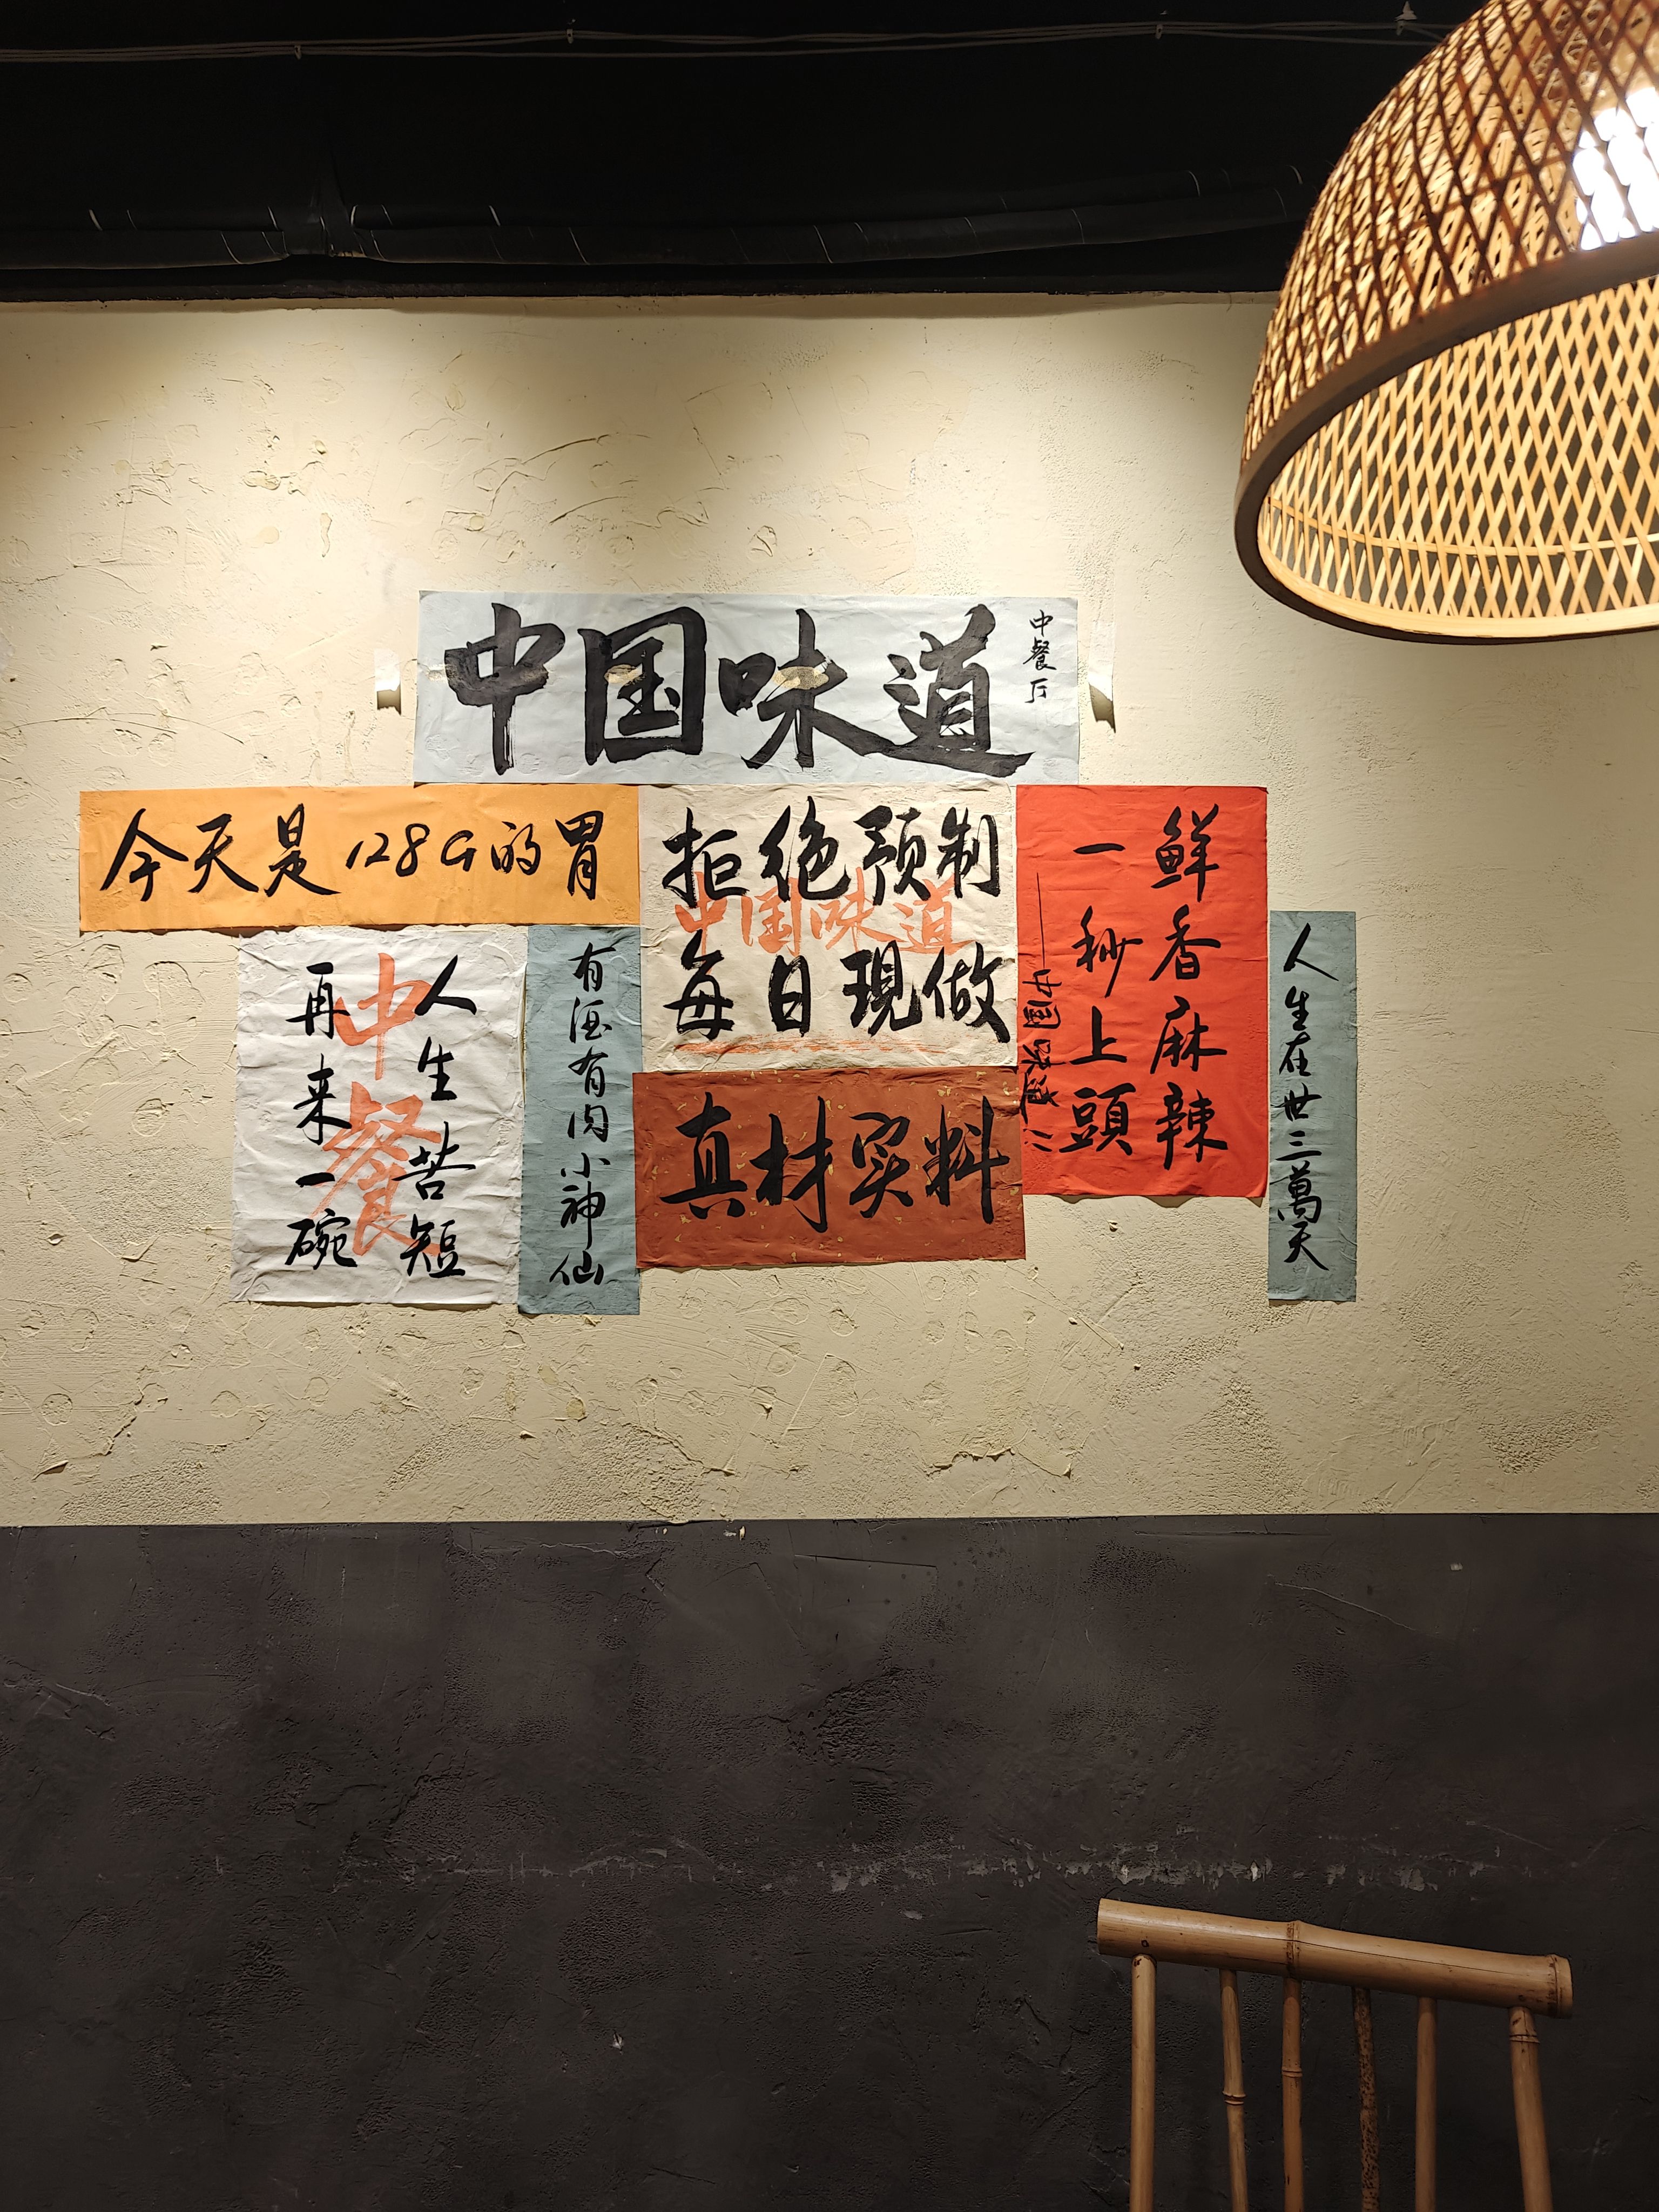 中国味道
中餐厅
今天是128G的胃
拒绝预制
中国味道
每日現做
鲜香麻辣
一秒上頭
——中国味道
人生苦短
再来一碗
中餐
有酒有肉小神仙
真材实料
人生在世三萬天